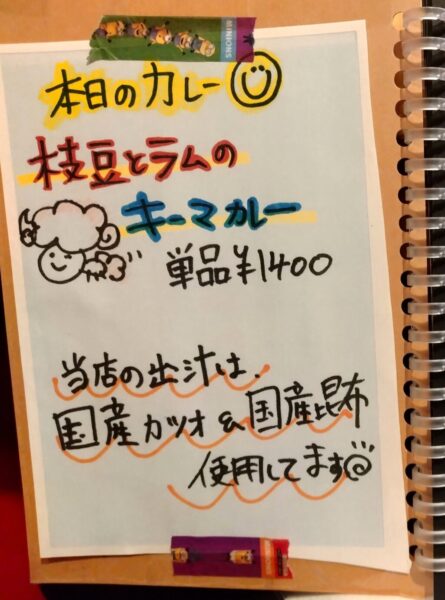 MINIONS
本日のカレー
枝豆とラムの
キーマカレー
単品¥1400
当店の出汁は、
国産カツオ&国産昆布
使用してます